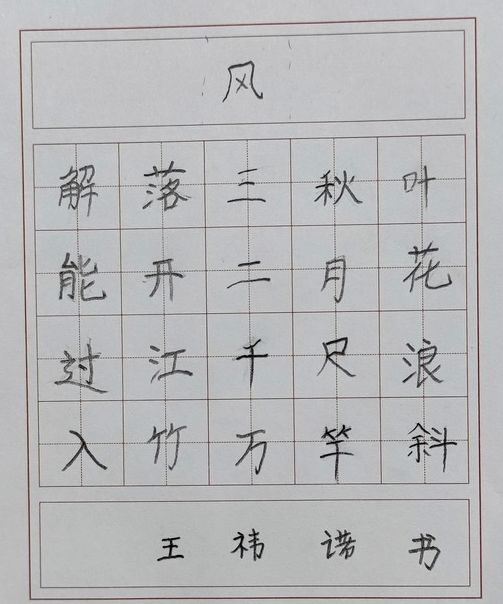 风
解落三秋叶
能开二月花
过江千尺浪
入竹万竿斜
王祎诺书